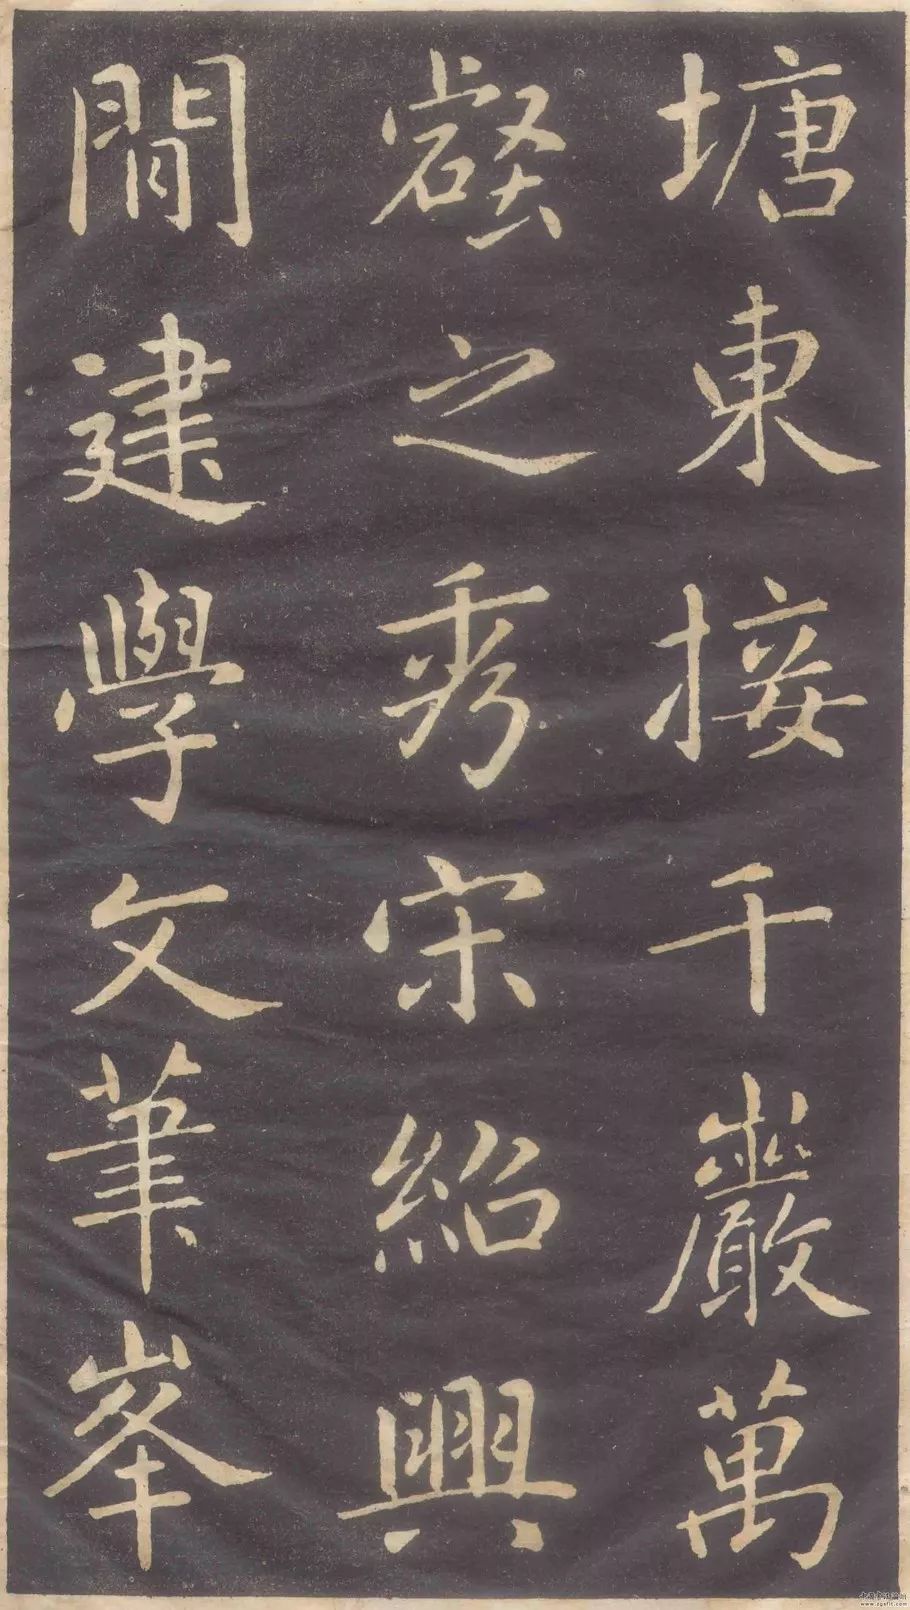 塘東接千巖萬
壑之秀宋紹興
間建學文筆峯
www.zgsfit.com